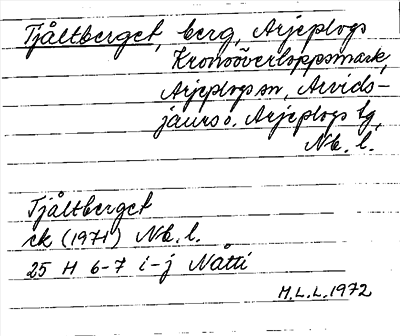 Tjåltberget, berg, Arjeplogs
Kronoöverloppsmark,
Arjeplogs sn, Arvids-
jaurs o. Arjeplogs tg,
Nb. l.
Tjåltberget
ek (1971) Nb. l.
25 H 6-7 i-j Nåtti
M.L.L. 1972